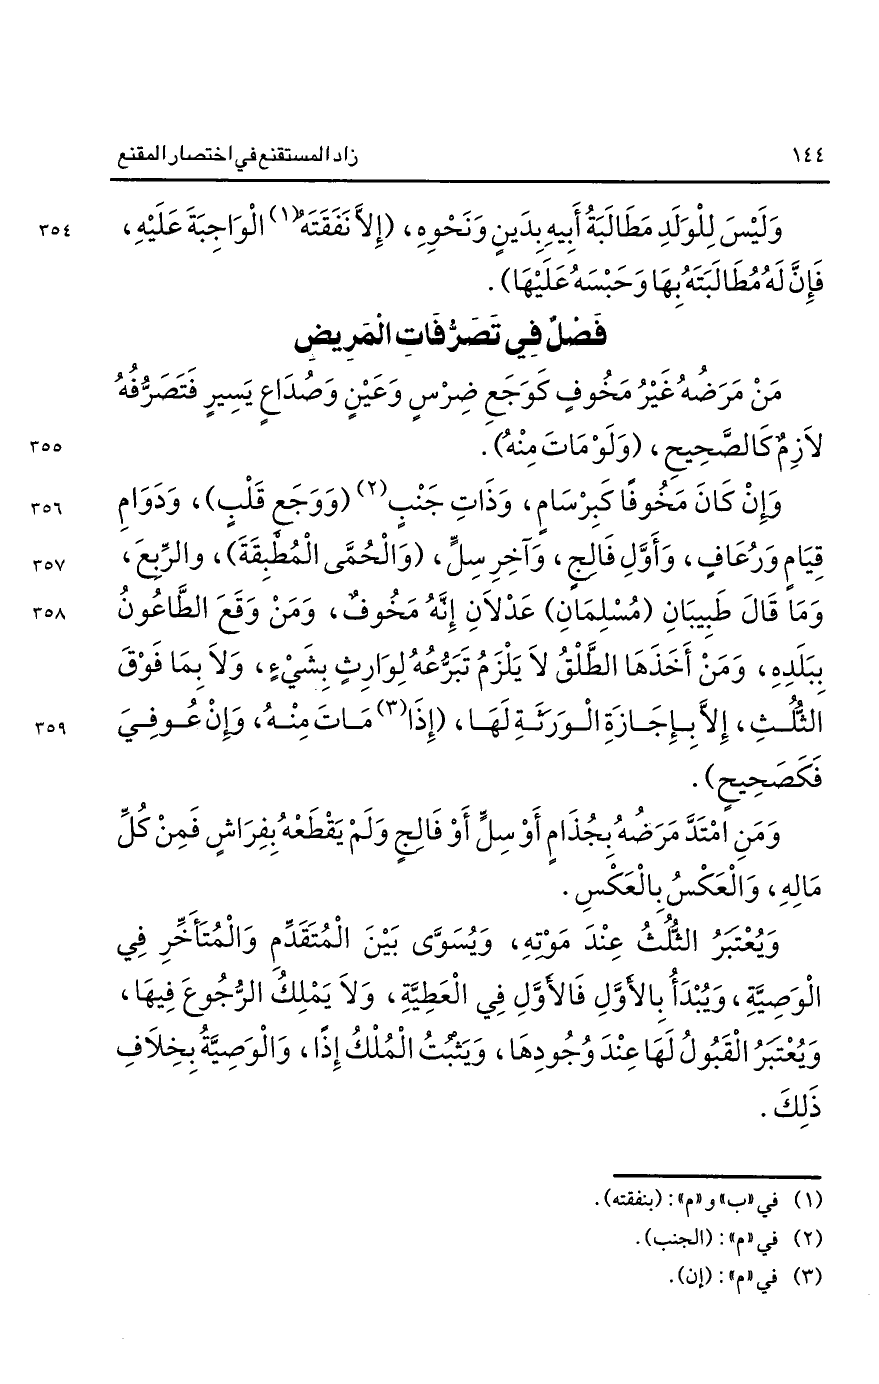 ١٤٤ زاد المستقنع في اختصار المقنع
وَلَيْسَ لِلْوَلَدِ مَطَالَبَةُ أَبِيهِ بِدَينٍ وَنَحْوِهِ، (إِلاَّ نَفَقَتَهُ(١) الْوَاجِبَةَ عَلَيْهِ، ٣٥٤
فَإِنَّ لَهُ مُطَالَبَتَهُ بِهَا وَحَبْسَهُ عَلَيْهَا).
فَصْلٌ فِي تَصَرُّفَاتِ الْمَرِيضِ
مَنْ مَرَضُهُ غَيْرُ مَخُوفٍ كَوَجَعِ ضِرْسٍ وَعَيْنٍ وَصُدَاعٍ يَسِيرٍ فَتَصَرُّفُهُ
لاَزِمٌ كَالصَّحِيحِ، (وَلَوْ مَاتَ مِنْهُ). ٣٥٥
وَإِنْ كَانَ مَخُوفًا كَبِرْسَامٍ، وَذَاتِ جَنْبٍ(٢) (وَوَجَعِ قَلْبٍ)، وَدَوَامِ ٣٥٦
قِيَامٍ وَرُعَافٍ، وَأَوَّلِ فَالِجٍ، وَآخِرِ سِلٍّ، (وَالْحُمَّى الْمُطْبِقَةَ)، والرِّبعَ، ٣٥٧
وَمَا قَالَ طَبِيبَانِ (مُسْلِمَانِ) عَدْلاَنِ إِنَّهُ مَخُوفٌ، وَمَنْ وَقَعَ الطَّاعُونُ ٣٥٨
بِبَلَدِهِ، وَمَنْ أَخَذَهَا الطَّلْقُ لاَ يَلْزَمُ تَبَرُّعُهُ لِوَارِثٍ بِشَيْءٍ، وَلاَ بِمَا فَوْقَ
الثُّلُثِ، إِلاَّ بِإِجَازَةِ الْوَرَثَةِ لَهَا، (إِذَا(٣) مَاتَ مِنْهُ، وَإِنْ عُوفِيَ ٣٥٩
فَكَصَحِيحٍ).
وَمَنِ امْتَدَّ مَرَضُهُ بِجُذَامٍ أَوْ سِلٍّ أَوْ فَالِجٍ وَلَمْ يَقْطَعْهُ بِفِرَاشٍ فَمِنْ كُلِّ
مَالِهِ، وَالْعَكْسُ بِالْعَكْسِ.
وَيُعْتَبَرُ الثُّلُثُ عِنْدَ مَوْتِهِ، وَيُسَوَّى بَيْنَ الْمُتَقَدِّمِ وَالْمُتَأَخِّرِ فِي
الْوَصِيَّةِ، وَيُبْدَأُ بِالأَوَّلِ فَالأَوَّلِ فِي الْعَطِيَّةِ، وَلاَ يَمْلِكُ الرُّجُوعَ فِيهَا،
وَيُعْتَبَرُ الْقَبُولُ لَهَا عِنْدَ وُجُودِهَا، وَيَثْبُتُ الْمُلْكُ إِذًا، وَالْوَصِيَّةُ بِخِلاَفِ
ذَلِكَ.
(١) في «ب» و «م»: (بنفقته).
(٢) في «م»: (الجنب).
(٣) في «م»: (إن).